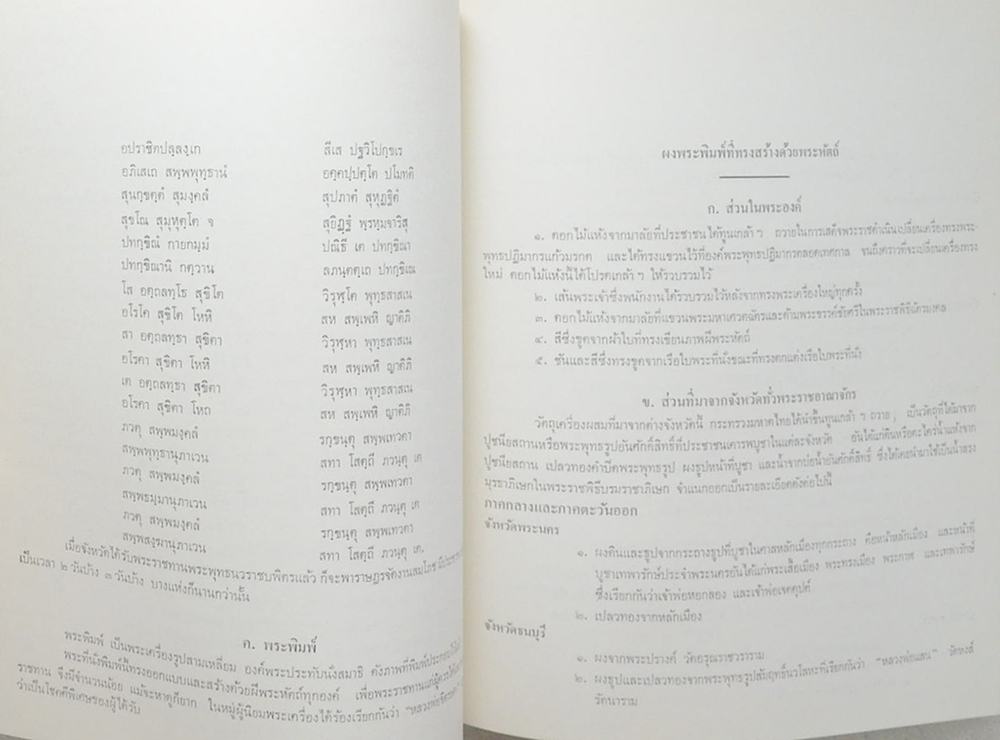 อปราชิตปลฺลงฺเก สีเส ปฐวิโปกฺขเร
อภิเสเถ สพฺพพุทฺธานํ อคฺคปฺปตฺโต ปโมทติ
สุนกฺขตฺตํ สุมงฺคลํ สุปภาตํ สุหุฏฺฐิตํ
สุขโณ สุมุหุตฺโต จ สุยิฏฺฐํ พฺรหฺมจาริสุ
ปทกฺขิณํ กายกมฺมํ ปณิธี เต ปทกฺขิณา
ปทกฺขิณานิ กตฺวาน ลภนฺตตฺเถ ปทกฺขิเณ
โส อตฺถลทฺโธ สุขิโต วิรุฬฺโห พุทฺธสาสเน
อโรโค สุขิโต โหหิ สห สพฺเพหิ ญาติภิ
สา อตฺถลทฺธา สุขิตา วิรุฬฺหา พุทฺธสาสเน
อโรคา สุขิตา โหหิ สห สพฺเพหิ ญาติภิ
เต อตฺถลทฺธา สุขิตา วิรุฬฺหา พุทฺธสาสเน
อโรคา สุขิตา โหถ สห สพฺเพหิ ญาติภิ
ภวตุ สพฺพมงฺคลํ รกฺขนฺตุ สพฺพเทวตา
สพฺพพุทฺธานุภาเวน สทา โสตฺถี ภวนฺตุ เต
ภวตุ สพฺพมงฺคลํ รกฺขนฺตุ สพฺพเทวตา
สพฺพธมฺมานุภาเวน สทา โสตฺถี ภวนฺตุ เต
ภวตุ สพฺพมงฺคลํ รกฺขนฺตุ สพฺพเทวตา
สพฺพสงฺฆานุภาเวน สทา โสตฺถี ภวนฺตุ เต.
เมื่อจังหวัดได้รับพระราชทานพระพุทธนวราชบพิตรแล้ว ก็จะพาราษฎรจัดงานสมโภช
เป็นเวลา ๒ วันบ้าง ๓ วันบ้าง บางแห่งก็นานกว่านั้น
ค. พระพิมพ์
พระพิมพ์ เป็นพระเครื่องรูปสามเหลี่ยม องค์พระประทับนั่งสมาธิ ดังภาพที่พิมพ์
พระที่นั่งพิมพ์นี้ทรงออกแบบและสร้างด้วยฝีพระหัตถ์ทุกองค์ เพื่อพระราชทานแก่
ราชทาน จึงมีจำนวนน้อย แม้จะหาดูก็ยาก ในหมู่ผู้นิยมพระเครื่องได้ร้องเรียกกันว่า
ว่าเป็นโชคดีพิเศษของผู้ได้รับ
ผงพระพิมพ์ที่ทรงสร้างด้วยพระหัตถ์
ก. ส่วนในพระองค์
๑. ดอกไม้แห้งจากมาลัยที่ประชาชนได้ทูนเกล้า ฯ ถวายในการเสด็จพระราชดำเนินเปลี่ยนเครื่องทรงพระ-
พุทธปฏิมากรแก้วมรกต และได้ทรงแขวนไว้ที่องค์พระพุทธปฏิมากรตลอดเทศกาล จนถึงคราวที่จะเปลี่ยนเครื่องทรง
ใหม่ ดอกไม้แห้งนี้ได้โปรดเกล้า ฯ ให้รวบรวมไว้
๒. เส้นพระเจ้าซึ่งพนักงานได้รวบรวมไว้หลังจากทรงพระเครื่องใหญ่ทุกครั้ง
๓. ดอกไม้แห้งจากมาลัยที่แขวนพระมหาเศวตฉัตรและด้ามพระขรรค์ชัยศรีในพระราชพิธีฉัตรมงคล
๔. สีซึ่งขูดจากผ้าใบที่ทรงเขียนภาพฝีพระหัตถ์
๕. ชันและสีซึ่งทรงขูดจากเรือใบพระที่นั่งขณะที่ทรงตกแต่งเรือใบพระที่นั่ง
ข. ส่วนที่มาจากจังหวัดทั่วพระราชอาณาจักร
วัตถุเครื่องผสมที่มาจากต่างจังหวัดนี้ กระทรวงมหาดไทยได้นำขึ้นทูนเกล้า ฯ ถวาย, เป็นวัตถุที่ได้มาจาก
ปูชนียสถานหรือพระพุทธรูปอันศักดิ์สิทธิ์ที่ประชาชนเคารพบูชาในแต่ละจังหวัด อันได้แก่ดินหรือตะไคร่น้ำแห้งจาก
ปูชนียสถาน เปลวทองคำปิดพระพุทธรูป ผงธูปหน้าที่บูชา และน้ำจากบ่อน้ำอันศักดิ์สิทธิ์ ซึ่งได้เคยนำมาใช้เป็นน้ำสรง
มุรธาภิเษกในพระราชพิธีบรมราชาภิเษก จำแนกออกเป็นรายละเอียดดังต่อไปนี้
ภาคกลางและภาคตะวันออก
จังหวัดพระนคร
๑. ผงดินและธูปจากกระถางธูปที่บูชาในศาลหลักเมืองทุกกระถาง คือหน้าหลักเมือง และหน้าที่
บูชาเทพารักษ์ประจำพระนครอันได้แก่พระเสื้อเมือง พระทรงเมือง พระกาฬ และเทพารักษ์
ซึ่งเรียกกันว่าเจ้าพ่อหอกลอง และเจ้าพ่อเจตคุปต์
๒. เปลวทองจากหลักเมือง
จังหวัดธนบุรี
๑. ผงจากพระปรางค์ วัดอรุณราชวราราม
๒. ผงธูปและเปลวทองจากพระพุทธรูปสัมฤทธิ์นวโลหะที่เรียกกันว่า "หลวงพ่อแสน" วัดหงส์
รัตนาราม